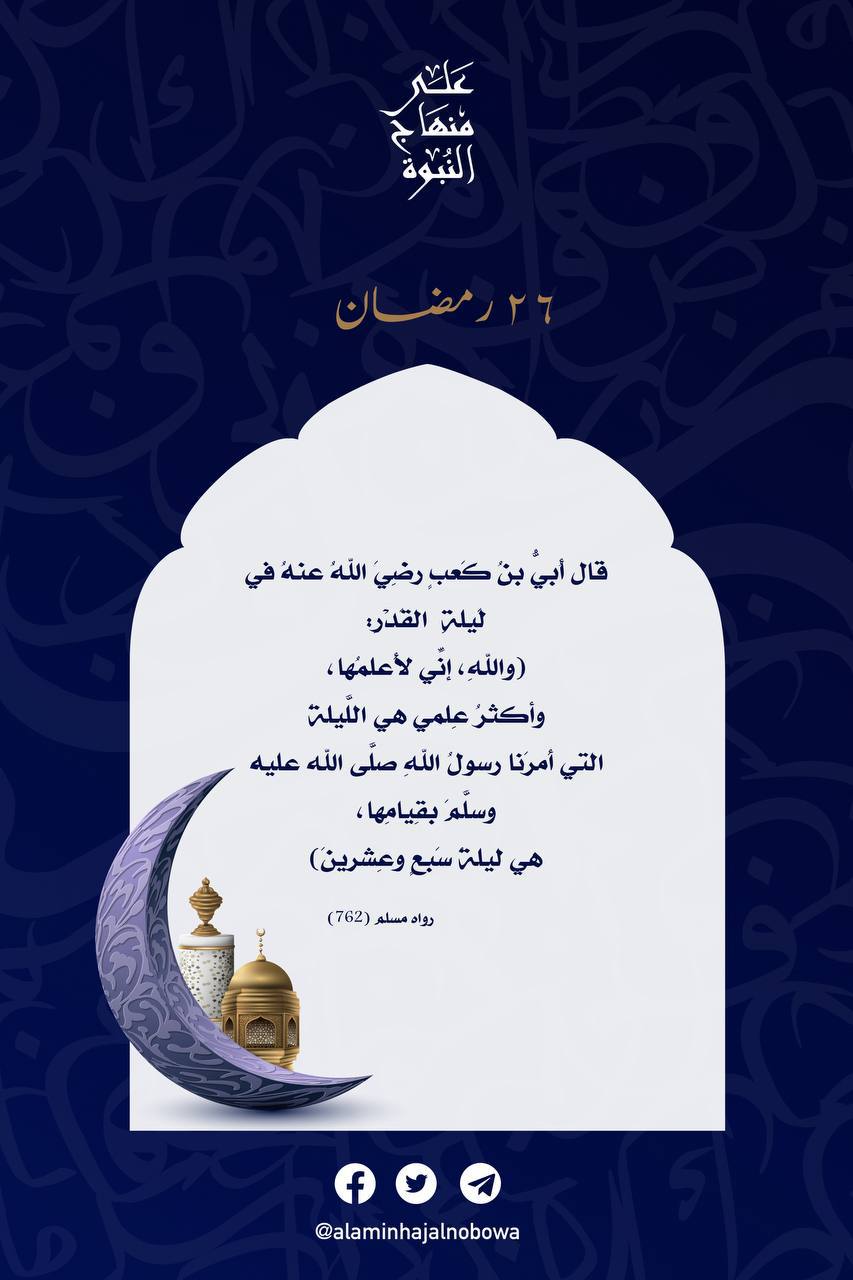 عَلَى
مِنهَاج
النُبوة
٢٦ رمضان
قال أبيُّ بنُ كَعبٍ رضِيَ اللّهُ عنهُ في
لَيلةِ القَدْرِ:
(واللّهِ، إنِّي لأعلمُها،
وأكثرُ عِلمي هي اللَّيلةُ
التي أمرَنا رسولُ اللّهِ صلَّى اللّه عليه
وسلَّمَ بقِيامِها،
هي ليلةُ سَبعٍ وعِشرينَ)
رواه مسلم (762)
@alaminhajalnobowa